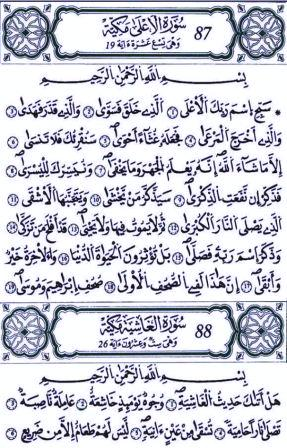 سُورَةُ الْأَعْلَىٰ مَكِّيَّةٌ 87
وَهِيَ تِسْعَ عَشْرَةَ ءَايَةً 19
بِسْمِ اللَّهِ الرَّحْمَٰنِ الرَّحِيمِ
سَبِّحِ اسْمَ رَبِّكَ الْأَعْلَى ١ الَّذِي خَلَقَ فَسَوَّىٰ ٢ وَالَّذِي قَدَّرَ فَهَدَىٰ ٣
وَالَّذِي أَخْرَجَ الْمَرْعَىٰ ٤ فَجَعَلَهُ غُثَاءً أَحْوَىٰ ٥ سَنُقْرِئُكَ فَلَا تَنسَىٰ ٦
إِلَّا مَا شَاءَ اللَّهُ إِنَّهُ يَعْلَمُ الْجَهْرَ وَمَا يَخْفَىٰ ٧ وَنُيَسِّرُكَ لِلْيُسْرَىٰ ٨
فَذَكِّرْ إِن نَّفَعَتِ الذِّكْرَىٰ ٩ سَيَذَّكَّرُ مَن يَخْشَىٰ ١٠ وَيَتَجَنَّبُهَا الْأَشْقَى ١١
الَّذِي يَصْلَى النَّارَ الْكُبْرَىٰ ١٢ ثُمَّ لَا يَمُوتُ فِيهَا وَلَا يَحْيَىٰ ١٣ قَدْ أَفْلَحَ مَن تَزَكَّىٰ ١٤
وَذَكَرَ اسْمَ رَبِّهِ فَصَلَّىٰ ١٥ بَلْ تُؤْثِرُونَ الْحَيَوٰةَ الدُّنْيَا ١٦ وَالْآخِرَةُ خَيْرٌ
وَأَبْقَىٰ ١٧ إِنَّ هَٰذَا لَفِي الصُّحُفِ الْأُولَىٰ ١٨ صُحُفِ إِبْرَاهِيمَ وَمُوسَىٰ ١٩
سُورَةُ الْغَاشِيَةِ مَكِّيَّةٌ 88
وَهِيَ سِتٌّ وَعِشْرُونَ ءَايَةً 26
بِسْمِ اللَّهِ الرَّحْمَٰنِ الرَّحِيمِ
هَلْ أَتَاكَ حَدِيثُ الْغَاشِيَةِ ١ وُجُوهٌ يَوْمَئِذٍ خَاشِعَةٌ ٢ عَامِلَةٌ نَّاصِبَةٌ ٣
تَصْلَىٰ نَارًا حَامِيَةً ٤ تُسْقَىٰ مِنْ عَيْنٍ ءَانِيَةٍ ٥ لَّيْسَ لَهُمْ طَعَامٌ إِلَّا مِن ضَرِيعٍ ٦